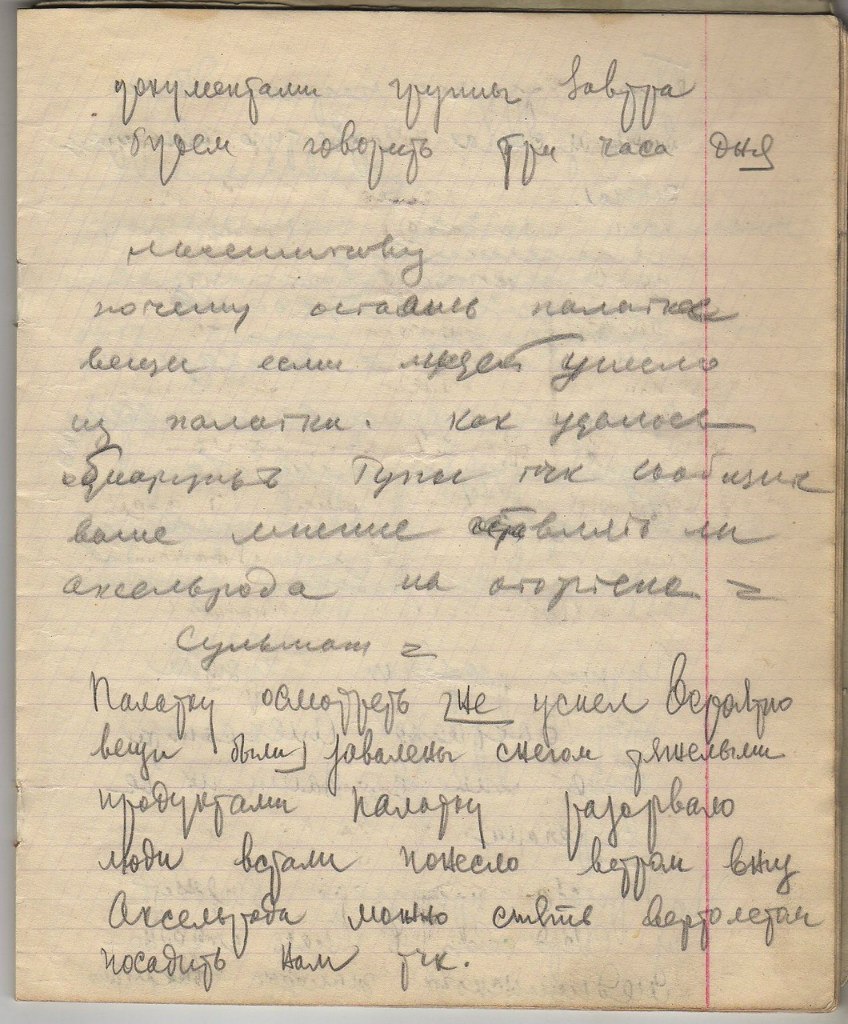 документами группы Завтра
будем говорить три часа дня
масленникову
почему остались палатке
вещи если людей унесло
из палатки. Как удалось
обнаружить Трупы тчк сообщите
ваше мнение оставлять ли
аксельрода на отортене =
Сульман =
Палатку осмотреть не успел Вероятно
вещи были завалены снегом тяжелыми
продуктами Палатку разорвало
люди встали понесло ветром вниз
Аксельрода можно снять Вертолетом
посадить нам тчк.